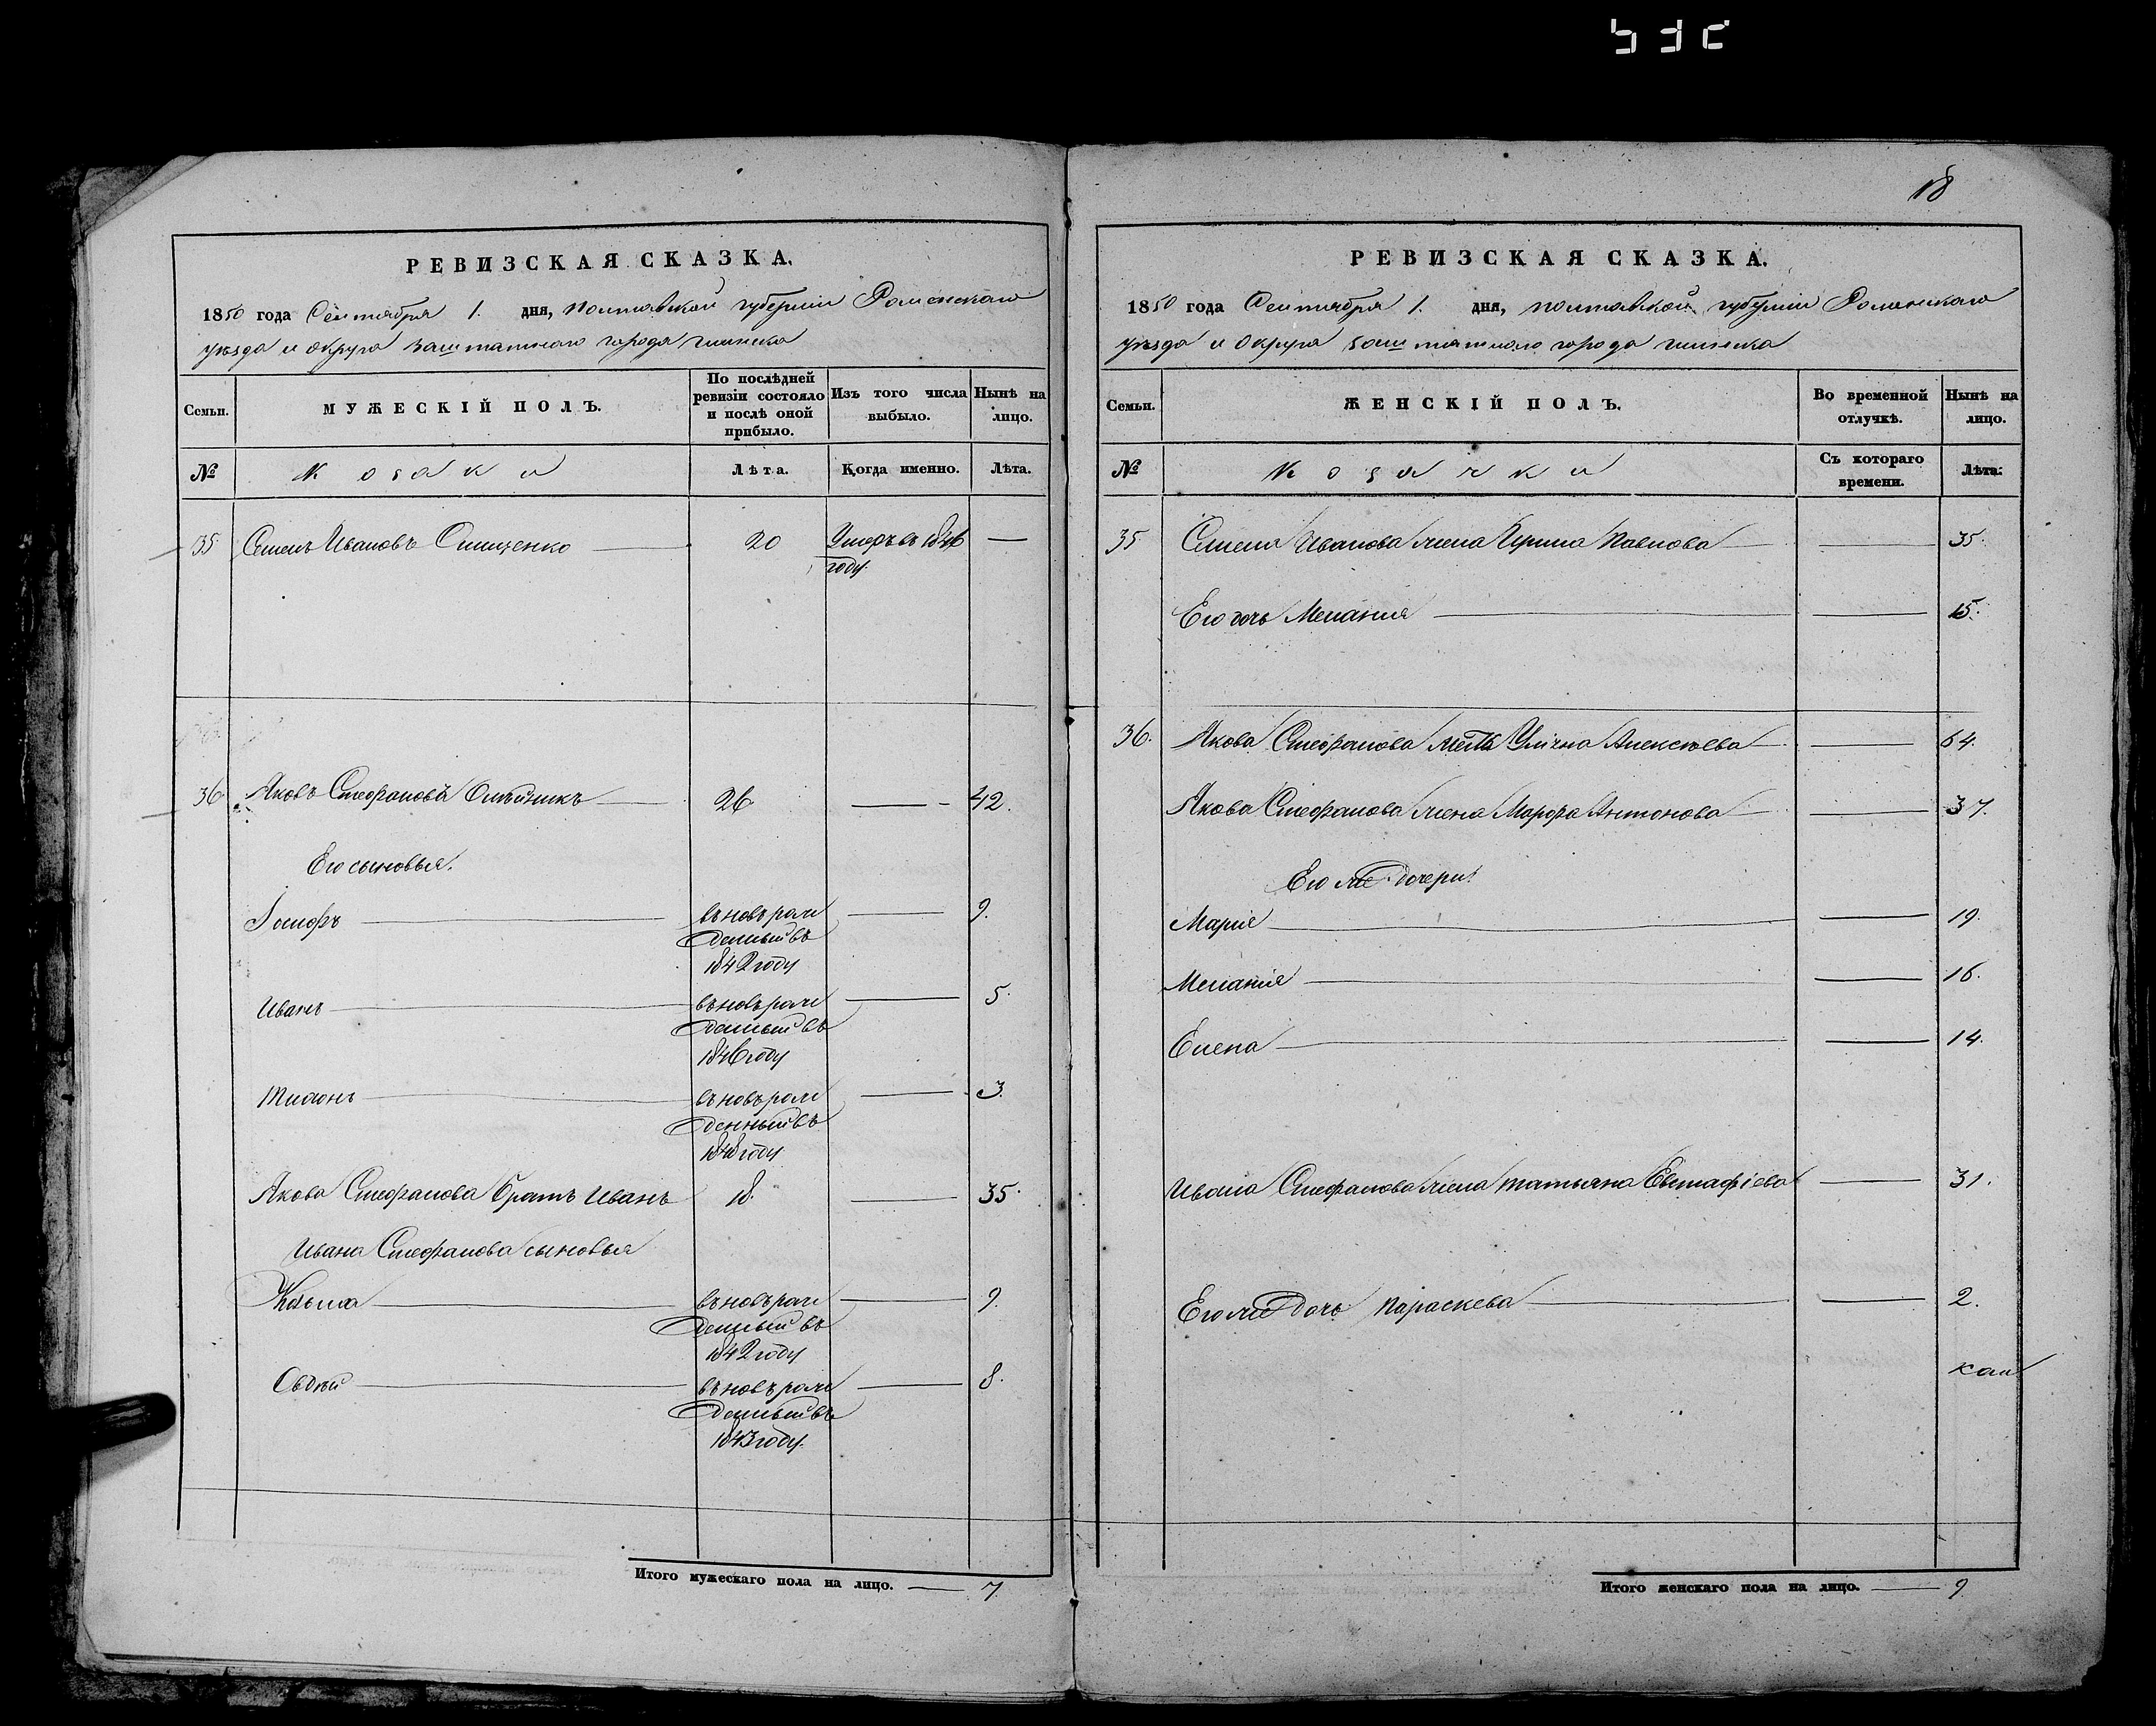 18
РЕВИЗСКАЯ СКАЗКА.
1850 года Сентября 1. дня, Полтавской губернии Роменскаго
уѣзда и округа заштатнаго города Глинска
Семьи.
МУЖЕСКІЙ ПОЛЪ.
По послѣдней ревизіи состояло и послѣ оной прибыло.
Изъ того числа выбыло.
Нынѣ на лицо.
№
Козаки
Лѣта.
Когда именно.
Лѣта.
35 Семенъ Ивановъ Онищенко — 20 Умеръ въ 1846 —
году.
36 Яковъ Стефановъ Олѣйникъ — 26 — 42.
Его сыновья.
Іосифъ — въновь рож — 9.
денный въ
1842 году
Иванъ — въновь рож — 5.
денный въ
1846 году
Тихонъ — въновь рож — 3.
денный въ
1848 году
Якова Стефанова братъ Иванъ 18. — 35.
Ивана Стефанова сыновья
Козьма — въновь рож — 9.
денный въ
1842 году
Овдѣй — въновь рож — 8.
денный въ
1843 году.
Итого мужескаго пола на лицо. — 7.
РЕВИЗСКАЯ СКАЗКА.
1850 года Сентября 1. дня, Полтавской губерніи Роменскаго
уѣзда и округа заштатнаго города Глинска
Семьи.
ЖЕНСКІЙ ПОЛЪ.
Во временной отлучкѣ.
Нынѣ на лицо.
№
Козачки
Съ котораго времени.
Лѣта.
35 Семена Иванова жена Ирина Павлова — — 35.
Его дочь Меланія — — 15.
36. Якова Стефанова Алексѣева — — 64.
Якова Стефанова жена Марфа Антонова — — 37.
Его же дочери.
Марія — — 19.
Меланія — — 16.
Елена — — 14.
Ивана Стефанова жена Татьяна Евстафіева — 31.
Его же дочь Параскева — — 2.
Итого женскаго пола на лицо. — 9.